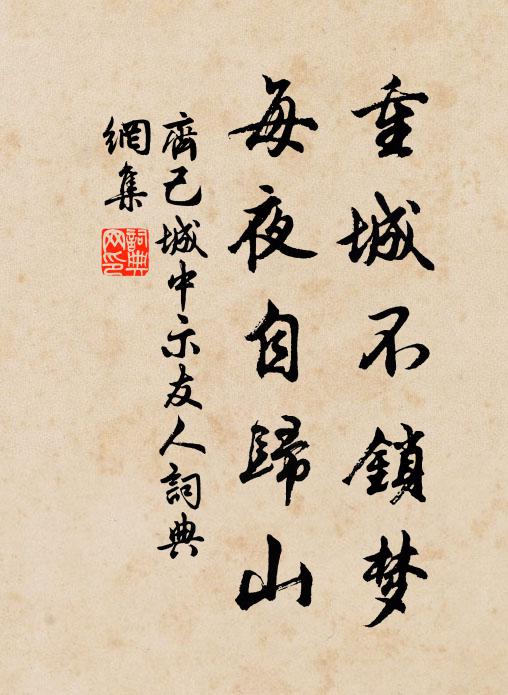 重城不鎖梦
每夜自歸山
齊己城中示友人詞典
網集
詞典
网印